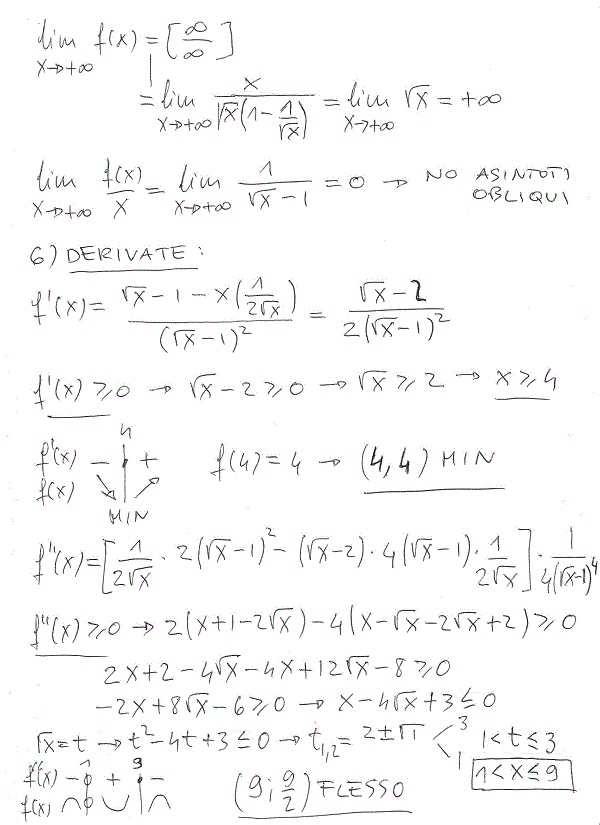 lim x→+∞ f(x) = [∞/∞]
= lim x→+∞ x/(√x(1 - 1/√x)) = lim x→+∞ √x = +∞
lim x→+∞ f(x)/x = lim x→+∞ 1/(√x - 1) = 0 → NO ASINTOTI OBLIQUI
6) DERIVATE:
f'(x) = (√x - 1 - x(1/(2√x)))/(√x - 1)² = (√x - 2)/(2(√x - 1)²)
f'(x) ≥ 0 → √x - 2 ≥ 0 → √x ≥ 2 → x ≥ 4
4
f'(x) - + f(4) = 4 → (4,4) MIN
f(x) ↘ ↗
MIN
f''(x) = [1/(2√x) · 2(√x - 1)² - (√x - 2) · 4(√x - 1) · 1/(2√x)] · 1/(4(√x - 1)⁴)
f''(x) ≥ 0 → 2(x + 1 - 2√x) - 4(x - √x - 2√x + 2) ≥ 0
2x + 2 - 4√x - 4x + 12√x - 8 ≥ 0
-2x + 8√x - 6 ≥ 0 → x - 4√x + 3 ≤ 0
√x = t → t² - 4t + 3 ≤ 0 → t₁,₂ = 2 ± √1 < 3 1 1 < t ≤ 3
1 < x ≤ 9
1 9
f''(x) - + -
f(x) ∩ ∪ ∩ (9; 9/2) FLESSO